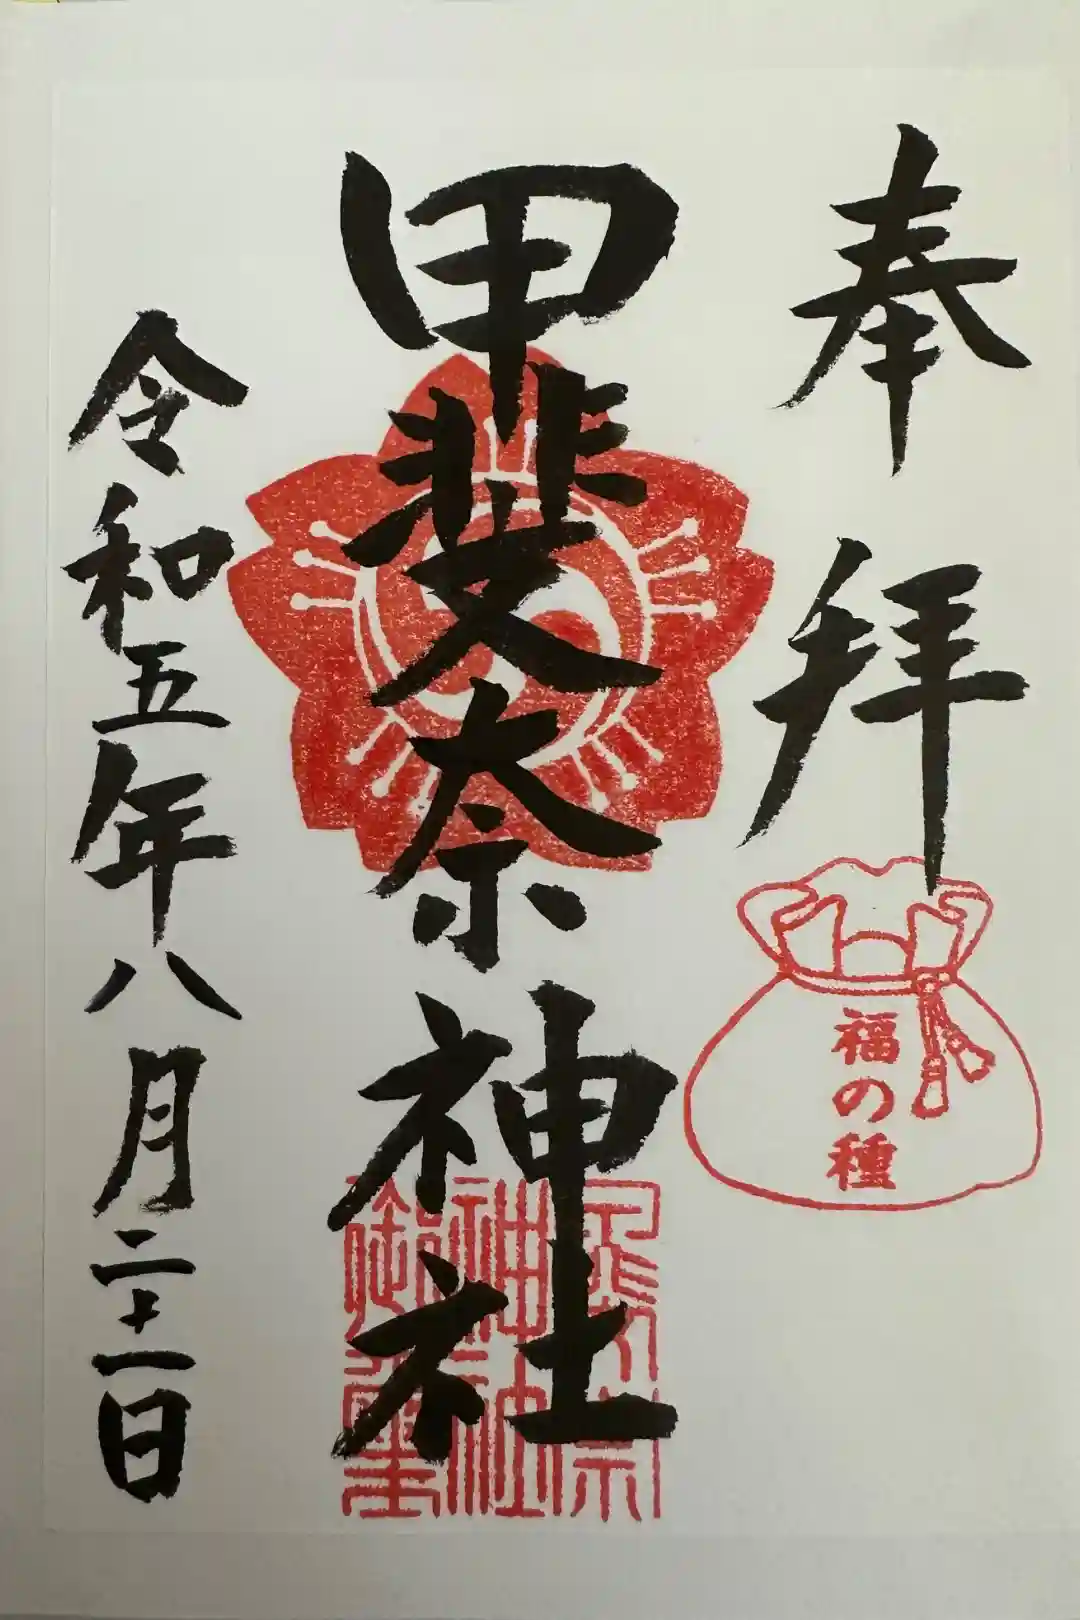 奉拝
福の種
甲斐奈神社
甲斐奈
神社
御璽
令和五年八月二十一日